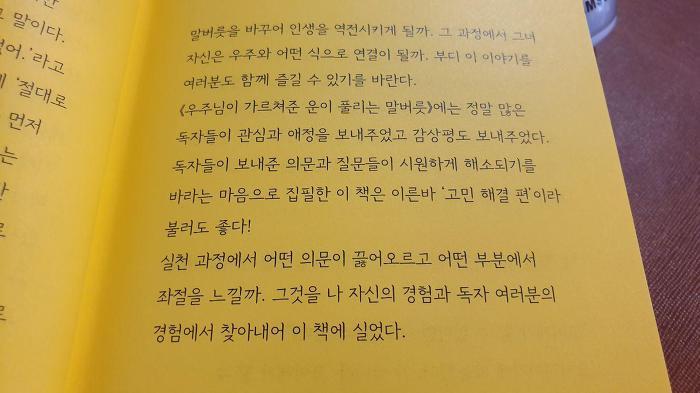 말이다.
어.’라고
‘절대로
먼저
는
말버릇을 바꾸어 인생을 역전시키게 될까. 그 과정에서 그녀
자신은 우주와 어떤 식으로 연결이 될까. 부디 이 이야기를
여러분도 함께 즐길 수 있기를 바란다.
《우주님이 가르쳐준 운이 풀리는 말버릇》에는 정말 많은
독자들이 관심과 애정을 보내주었고 감상평도 보내주었다.
독자들이 보내준 의문과 질문들이 시원하게 해소되기를
바라는 마음으로 집필한 이 책은 이른바 ‘고민 해결 편’이라
불러도 좋다!
실천 과정에서 어떤 의문이 끓어오르고 어떤 부분에서
좌절을 느낄까. 그것을 나 자신의 경험과 독자 여러분의
경험에서 찾아내어 이 책에 실었다.